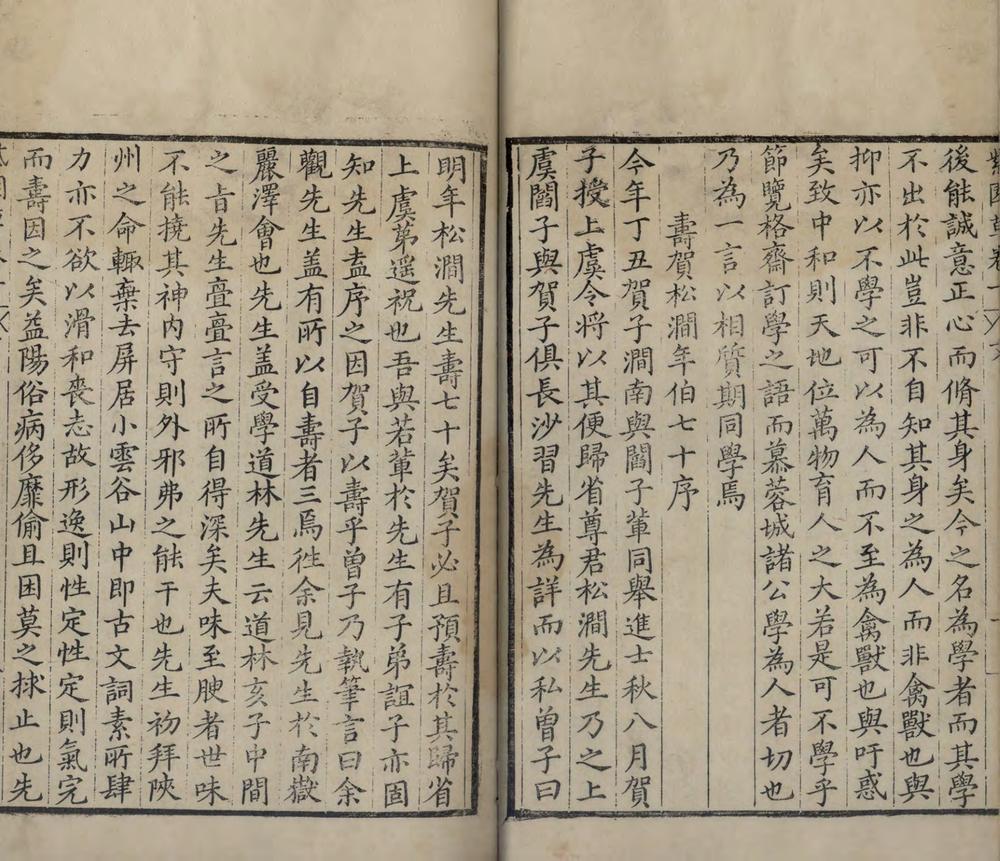 後能誠意正心而脩其身矣今之名為學者而其學
不出於此豈非不自知其身之為人而非禽獸也與
抑亦以不學之可以為人而不至為禽獸也與吁惑
矣致中和則天地位萬物育人之大若是可不學乎
節覽格齋訂學之語而慕蓉城諸公學為人者切也
乃為一言以相質期同學焉
壽賀松澗年伯七十序
今年丁丑賀子澗南與閻子輩同舉進士秋八月賀
子授上虞令將以其便歸省尊君松澗先生乃之上
虞閻子與賀子俱長沙習先生為詳而以私曾子曰
明年松澗先生壽七十矣賀子必且預壽於其歸省
上虞第遥祝也吾與若輩於先生有子弟誼子亦固
知先生盍序之因賀子以壽乎曾子乃執筆言曰余
觀先生盖有所以自壽者三焉徃余見先生於南嶽
麗澤會也先生盖受學道林先生云道林亥子中間
之旨先生亹亹言之所自得深矣夫味至腴者世味
不能撓其神内守則外邪弗之能干也先生初拜陝
州之命輙棄去屏居小雲谷山中即古文詞素所肆
力亦不欲以滑和喪志故形逸則性定性定則氣完
而壽因之矣益陽俗病侈靡偷且困莫之捄止也先